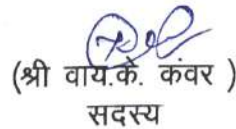 (श्री वाय.के. कंवर )
सदस्य